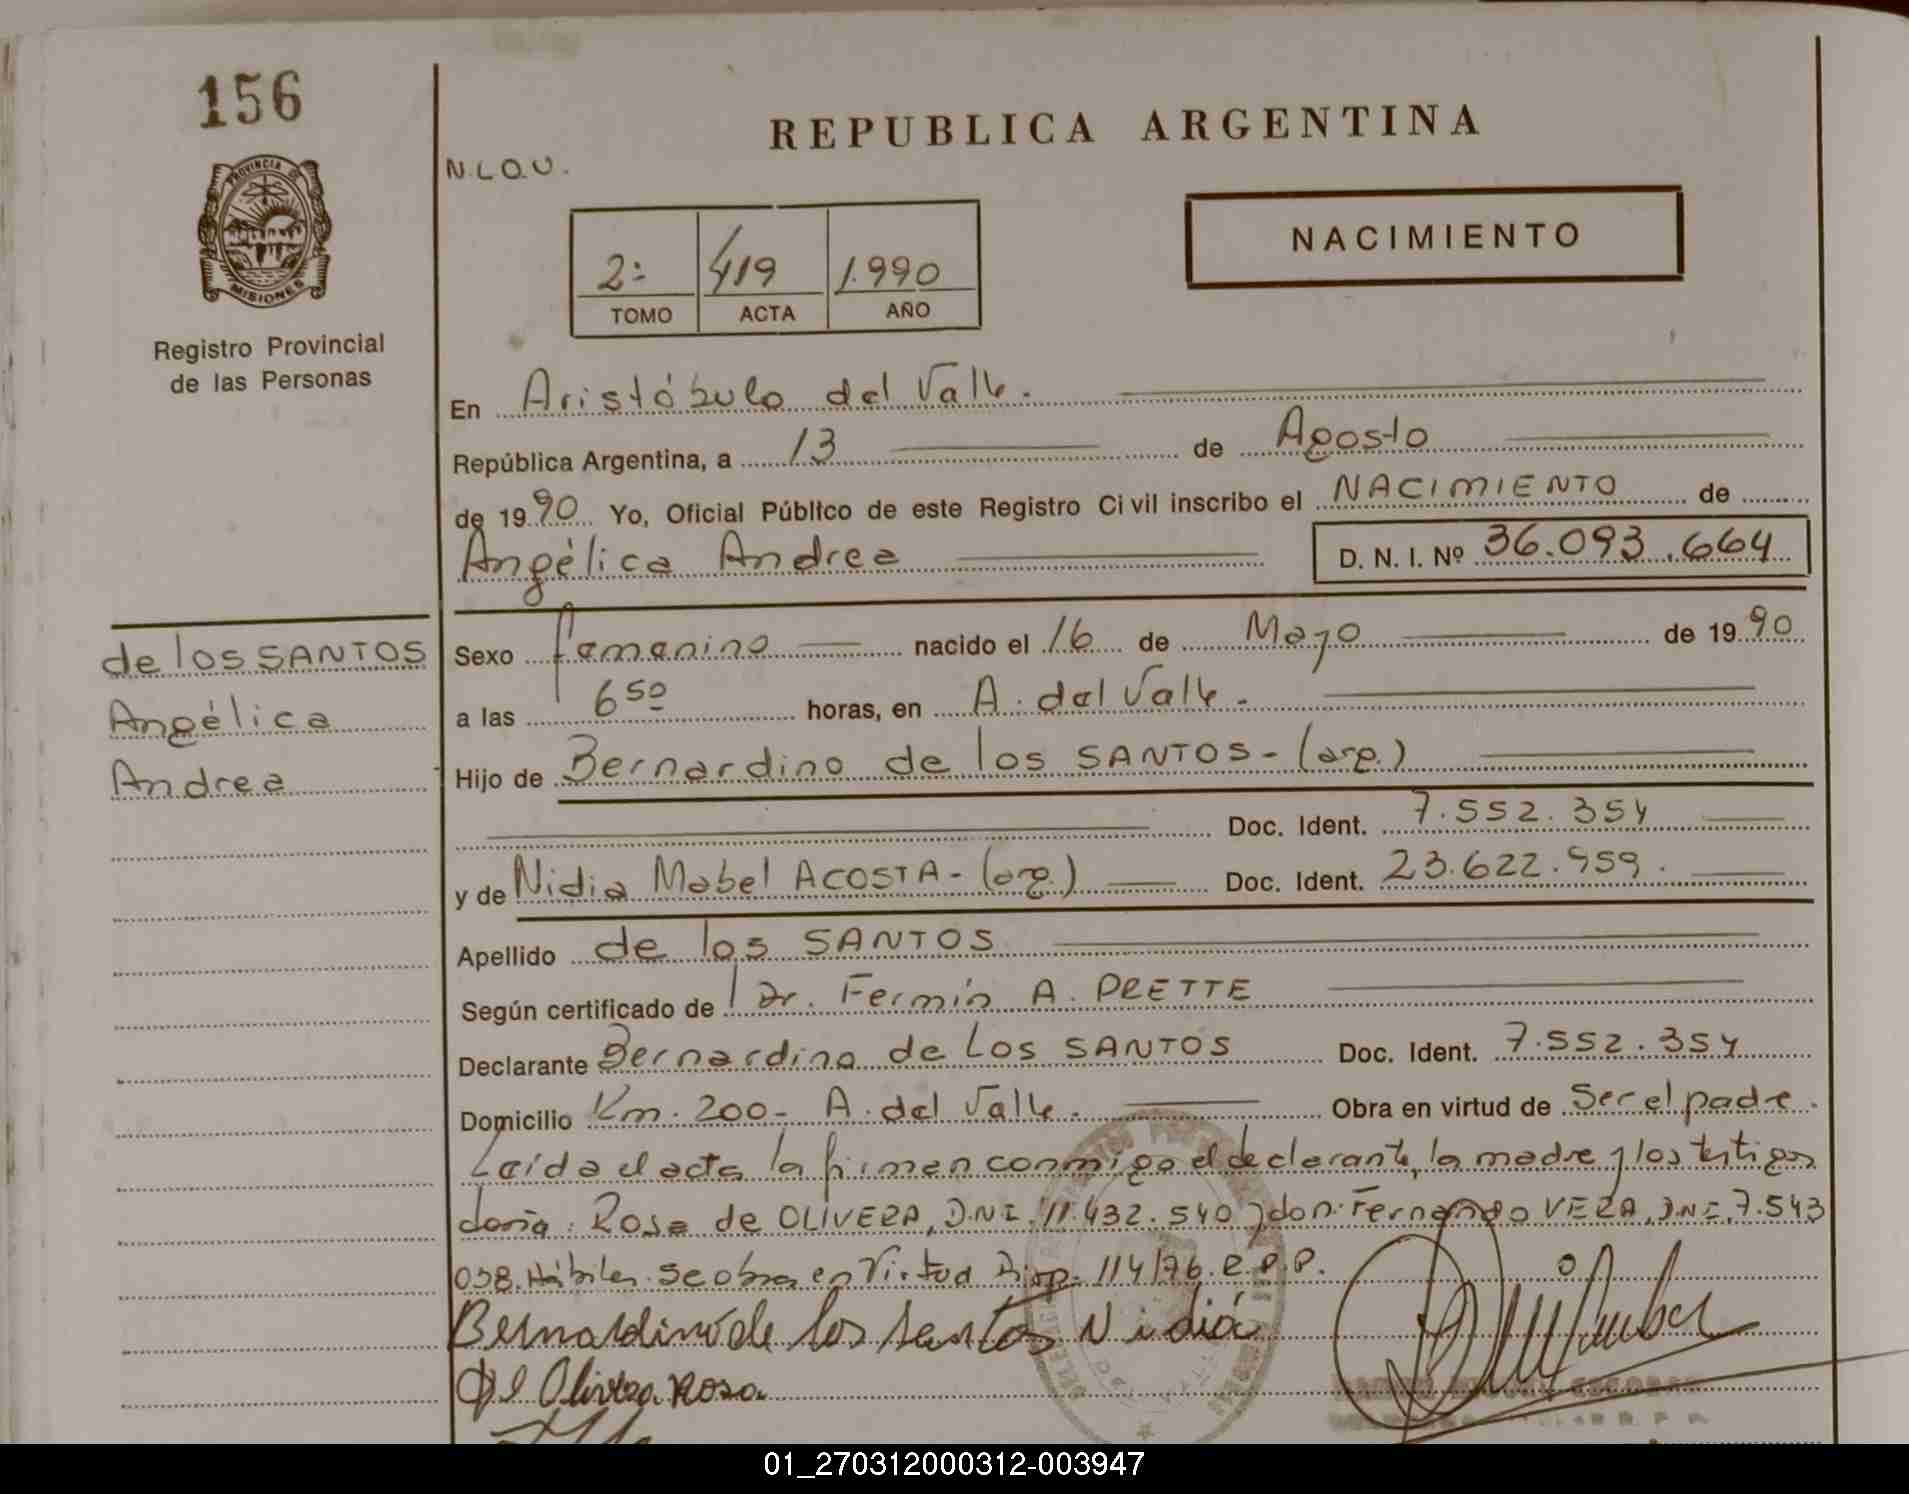 156
PROVINCIA DE
MISIONES
Registro Provincial
de las Personas
REPUBLICA ARGENTINA
N.L.O.U.
NACIMIENTO
2º 419 1.990
TOMO ACTA AÑO
En Aristóbulo del Valle.
República Argentina, a 13 de Agosto
de 1990 Yo, Oficial Público de este Registro Civil inscribo el NACIMIENTO de
Angélica Andrea D. N. I. Nº 36.093.664
de los SANTOS
Angélica
Andrea
Sexo femenino nacido el 16 de Mayo de 1990
a las 6 50 horas, en A. del Valle.
Hijo de Bernardino de los SANTOS - (arg.)
Doc. Ident. 7.552.354
y de Nidia Mabel ACOSTA - (arg.) Doc. Ident. 23.622.959.
Apellido de los SANTOS
Según certificado de Dr. Fermín A. PRETTE
Declarante Bernardino de Los SANTOS Doc. Ident. 7.552.354
Domicilio Km. 200 - A. del Valle. Obra en virtud de Ser el padre.
Leída el acta la firman conmigo el declarante, la madre y los testigos
doña: Rosa de OLIVERA, D.N.I. 11.432.540 y don: Fernando VERA, D.N.I. 7.543
038. Hábiles. Se obra en Virtud Disp. 114/76. R.P.P.
Bernardino de los santos Nidia
De Olivera Rosa
01_270312000312-003947